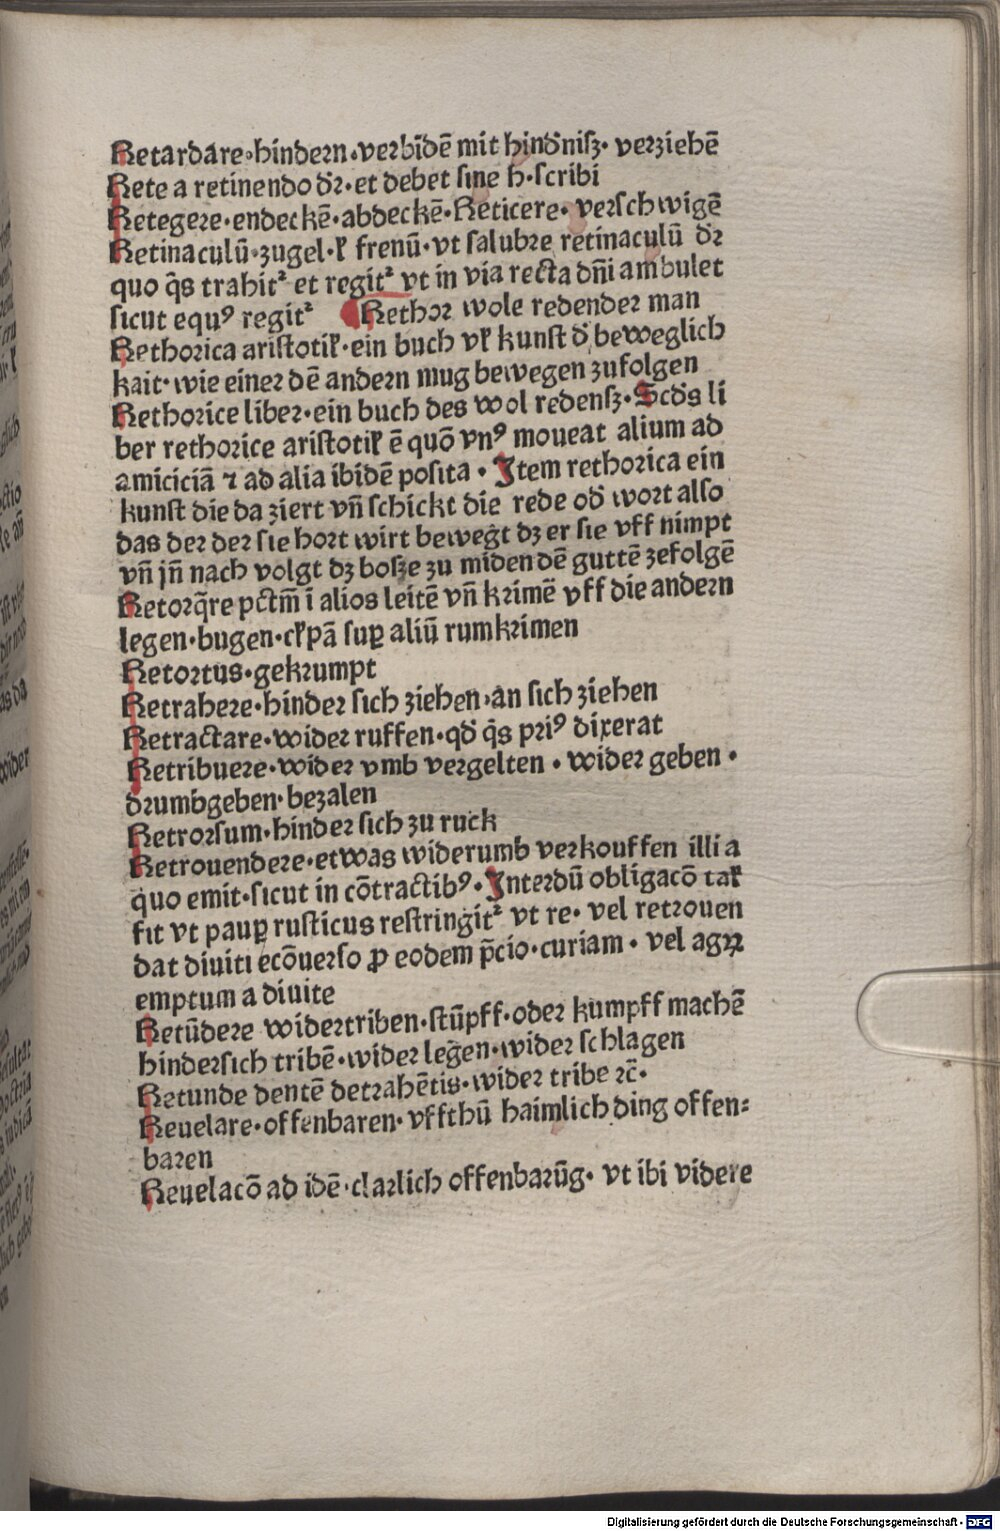 Retardare·hindern·verbīdē mit hind'niſz· verziehē
Rete a retinendo d'r·et debet ſine h·ſcribi
Retegere·endeckē·abdeckē·Reticere·verſchwigē
Retinaculū·zugel·ł frenū·vt ſalubre retinaculū d'r
quo q̄s trahit᷑ et regit᷑ vt in via recta dn̄i ambulet
ſicut equꝰ regit᷑ Rethor wole redender man
Rethorica ariſtotił·ein buch vł kunſt d' beweglich
kait·wie einer dē andern mug bewegen zufolgen
Rethorice liber·ein buch des wol redenſz·Scd's li
ber rethorice ariſtotił ē quō vnꝰ moueat alium ad
amiciciā ⁊ ad alia ibidē poſita·Item rethorica ein
kunſt die da ziert vn̄ ſchickt die rede od' wort alſo
das der der ſie hort wirt bewegt dz er ſie vff nimpt
vn̄ jn̄ nach volgt dz boſze zu miden dē guttē zefolgē
Retorq̄re pctm̄ ī alios leitē vn̄ krimē vff die andern
legen·bugen·cłpā ſuꝑ aliū rumkrimen
Retortus·gekrumpt
Retrahere·hinder ſich ziehen·an ſich ziehen
Retractare·wider ruffen·qd' q̄s priꝰ dixerat
Retribuere·wider vmb vergelten·wider geben·
drumbgeben·bezalen
Retrorſum·hinder ſich zu ruck
Retrouendere·etwas widerumb verkouffen illi a
quo emit·ſicut in cōtractibꝰ·Interdū obligacō tał
fit vt pauꝑ ruſticus reſtringit᷑ vt re·vel retrouen
dat diuiti ecōuerſo ꝓ eodem p̄cio·curiam·vel agꝝ
emptum a diuite
Retūdere widertriben·ſtūpff·oder kumpff machē
hinderſich tribē·wider legen·wider ſchlagen
Retunde dentē detrahētis·wider tribe ⁊c̄·
Reuelare·offenbaren·vffthū haimlich ding offen⸗
baren
Reuelacō ad idē·clarlich offenbarūg·vt ibi videre
Digitalisierung gefördert durch die Deutsche Forschungsgemeinschaft · DFG